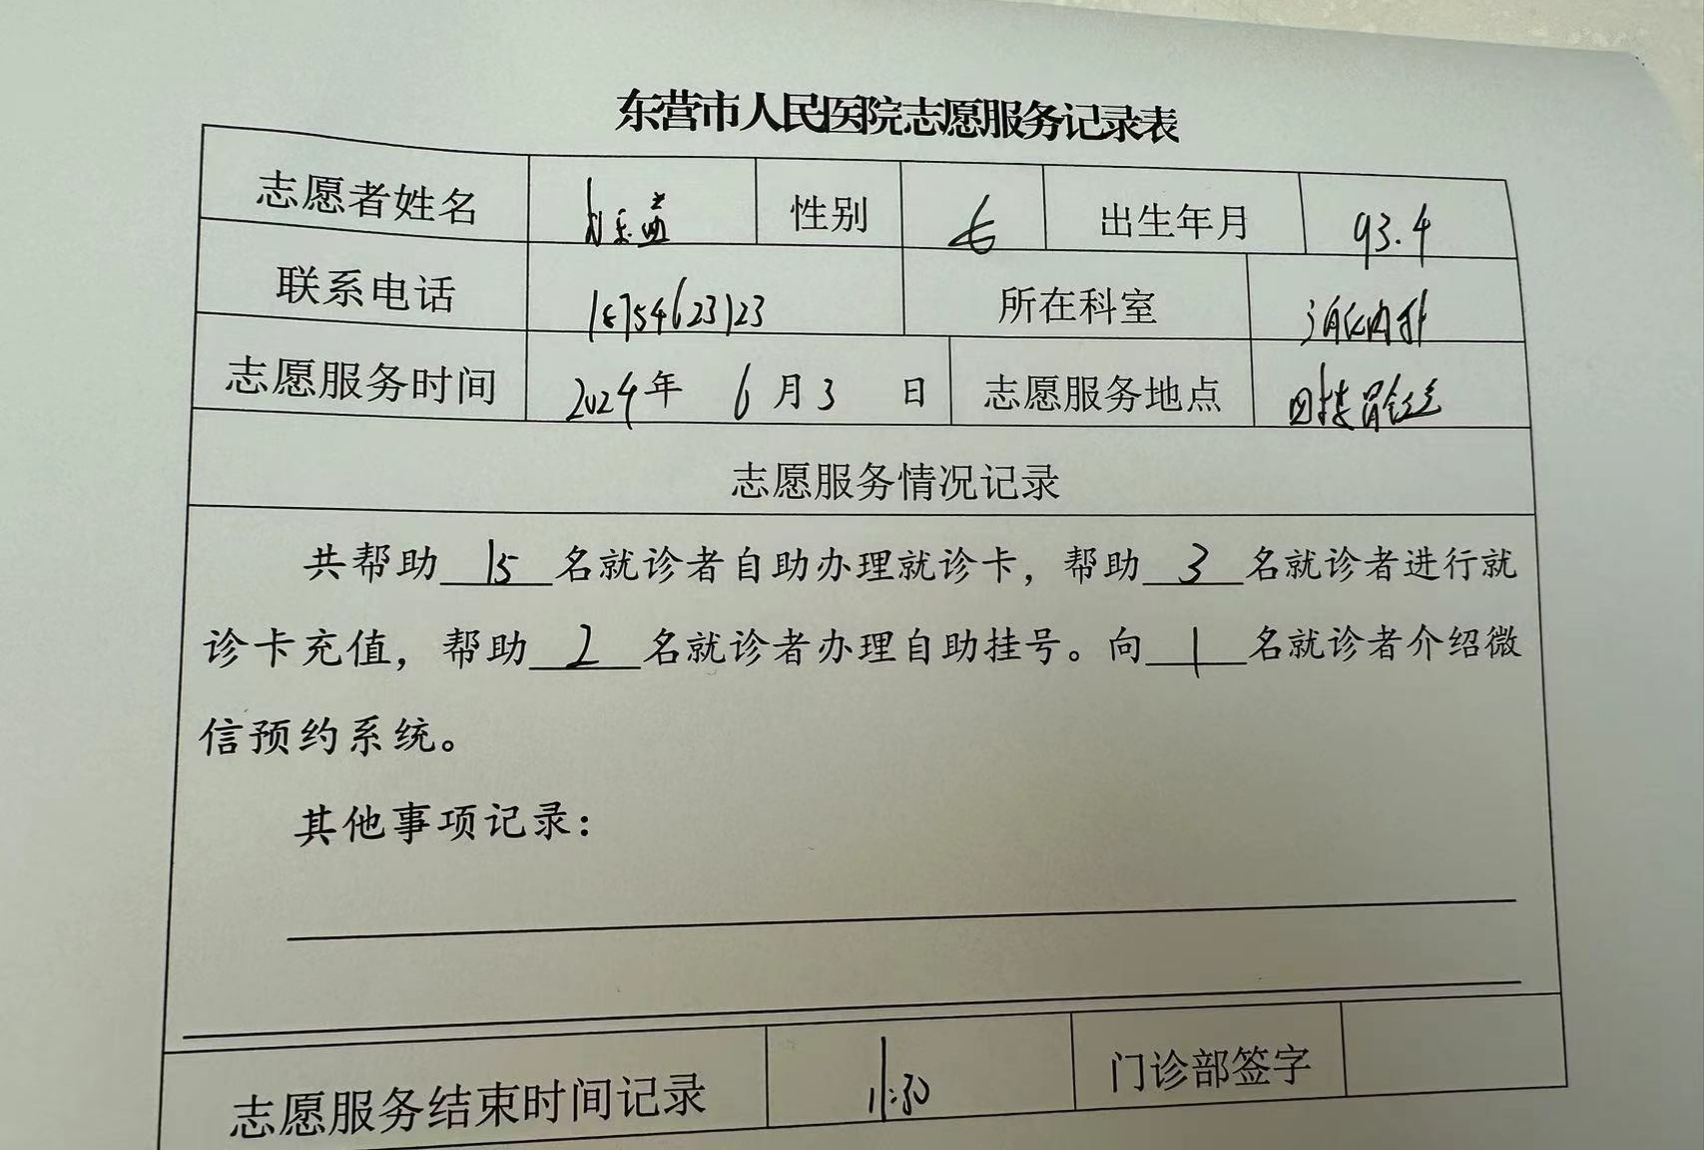 东营市人民医院志愿服务记录表
志愿者姓名 性别 女 出生年月 93.4
联系电话 18754623123 所在科室 消化内科
志愿服务时间 2024年 6月3 日 志愿服务地点 四楼胃镜室
志愿服务情况记录
共帮助 15 名就诊者自助办理就诊卡，帮助 3 名就诊者进行就
诊卡充值，帮助 2 名就诊者办理自助挂号。向 1 名就诊者介绍微
信预约系统。
其他事项记录：
志愿服务结束时间记录 11:30 门诊部签字